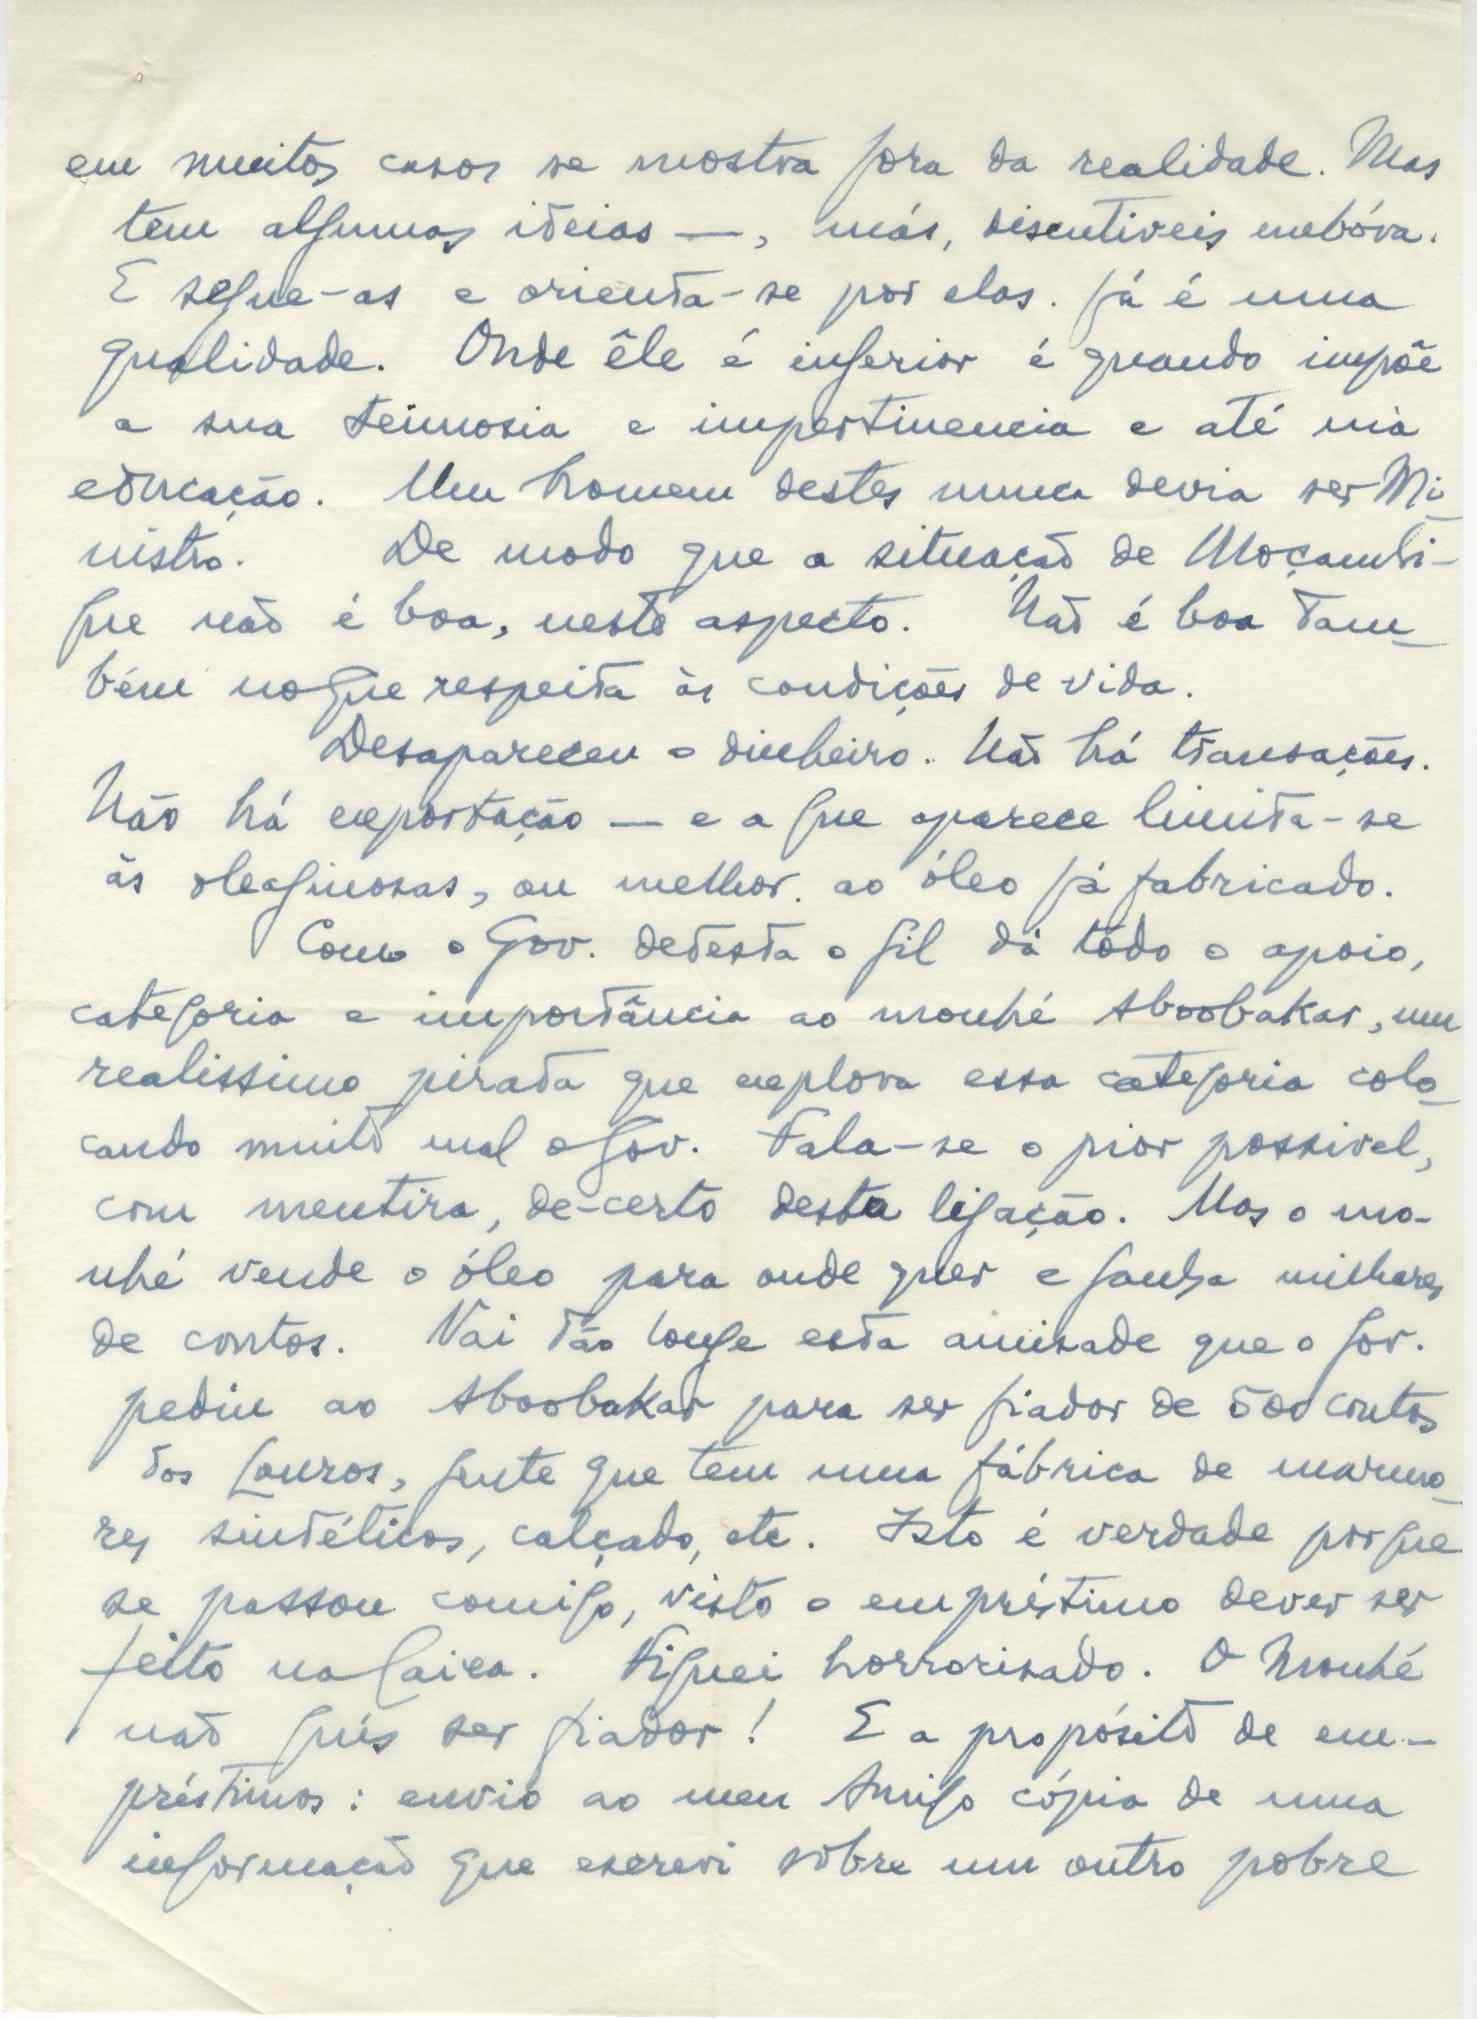 em muitos casos se mostra fora da realidade. Mas
tem algumas ideias —, más, discutiveis embóra.
E segue-as e orienta-se por elas. Já é uma
qualidade. Onde êle é inferior é quando impõe
a sua teimosia e impertinencia e até má
educação. Um homem destes nunca devia ser Mi-
nistro. De modo que a situação de Moçambi-
que não é boa, neste aspecto. Não é boa tam-
bém no que respeita às condições de vida.
Desapareceu o dinheiro. Não há transações.
Não há exportação — e a que aparece limita-se
às oleaginosas, ou melhor. ao óleo já fabricado.
Como o Gov. detesta o Gil dá todo o apoio,
categoria e importância ao monhé Aboobakar, um
realissimo pirata que explora essa categoria colo-
cando muito mal o Gov. Fala-se o pior possivel,
com mentira, de-certo desta ligação. Mas o mo-
nhé vende o óleo para onde quer e ganha milhares
de contos. Vai tão longe esta amisade que o Gov.
pediu ao Aboobakar para ser fiador de 500 contos
dos Lauros, gente que tem uma fábrica de marmo-
res sintéticos, calçado, etc. Isto é verdade porque
se passou comigo, visto o empréstimo dever ser
feito na Caixa. Fiquei horrorisado. O Monhé
não quis ser fiador! E a propósito de em-
préstimos: envio ao meu Amigo cópia de uma
informação que escrevi sôbre um outro pobre